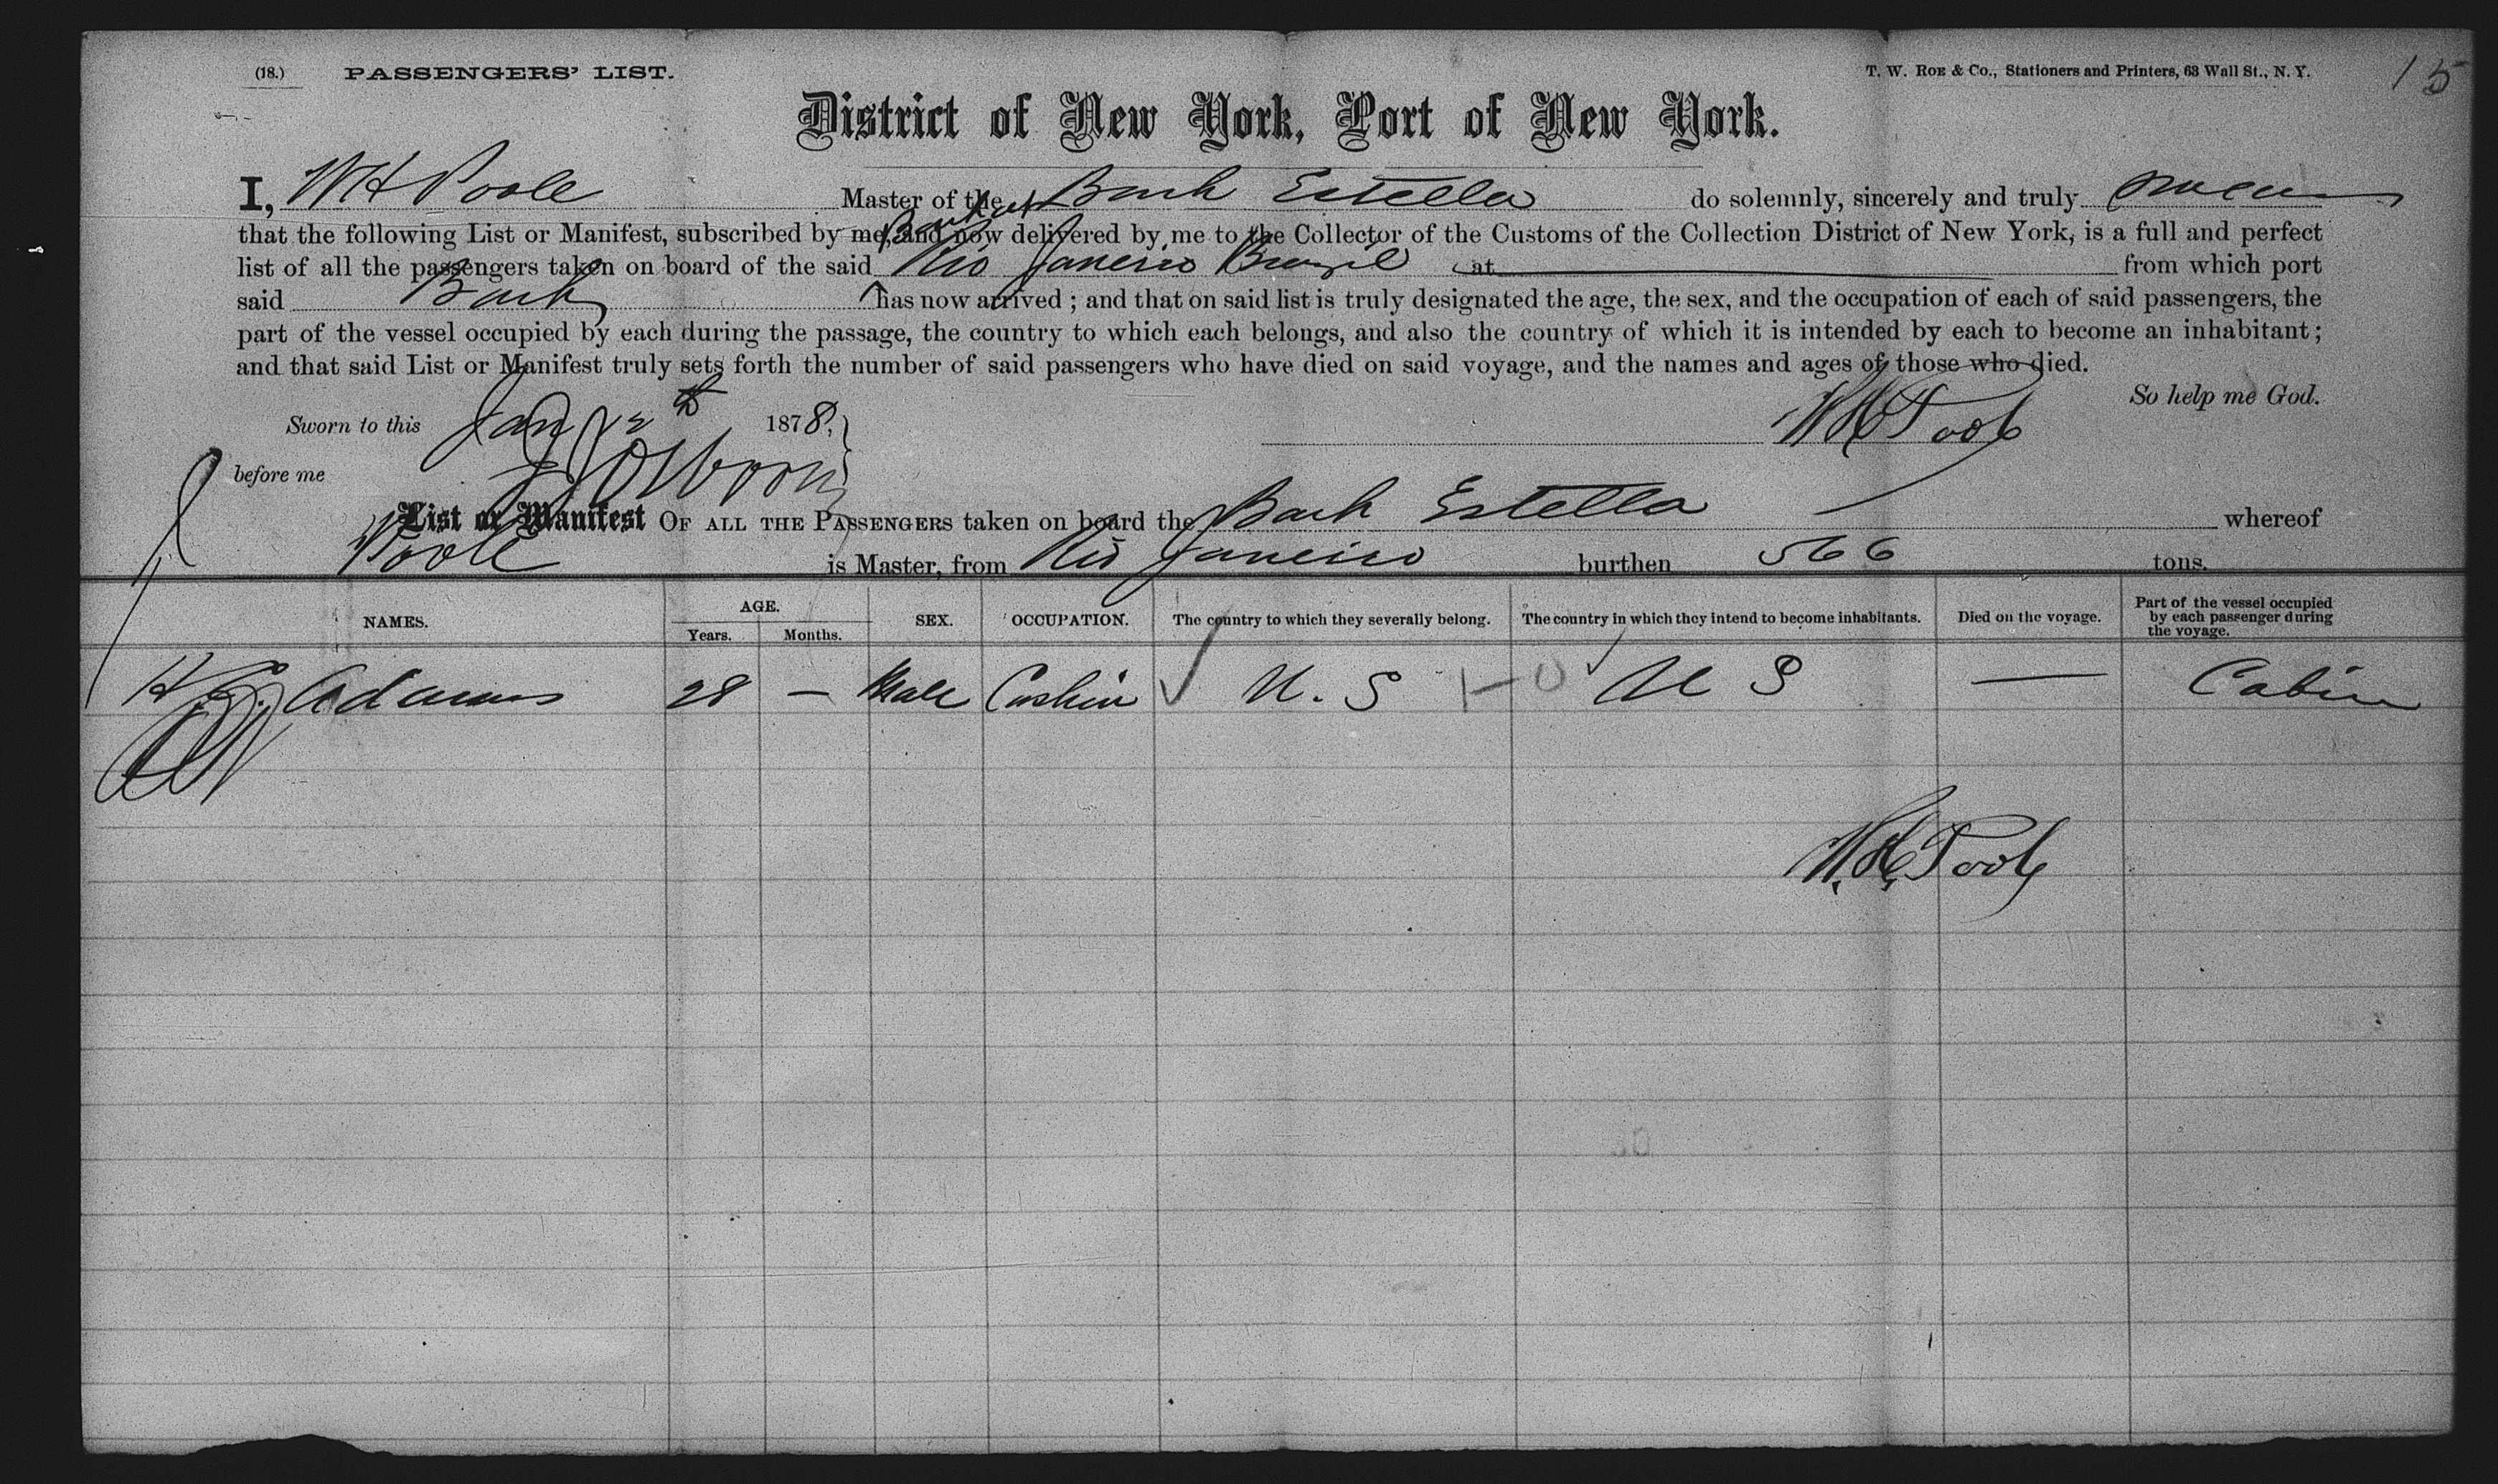 (18.) PASSENGERS' LIST. T. W. ROE & Co., Stationers and Printers, 63 Wall St., N. Y. 15
District of New York, Port of New York.
I, W H Poole Master of the Bark Estella do solemnly, sincerely and truly swear
that the following List or Manifest, subscribed by me, and now delivered by me to the Collector of the Customs of the Collection District of New York, is a full and perfect
list of all the passengers taken on board of the said Bark at Rio Janeiro Brazil at from which port
said Bark has now arrived; and that on said list is truly designated the age, the sex, and the occupation of each of said passengers, the
part of the vessel occupied by each during the passage, the country to which each belongs, and also the country of which it is intended by each to become an inhabitant;
and that said List or Manifest truly sets forth the number of said passengers who have died on said voyage, and the names and ages of those who died.
So help me God.
Sworn to this Jan 12th 1878, W H Poole
before me Osborn
List or Manifest OF ALL THE PASSENGERS taken on board the Bark Estella whereof
Poole is Master, from Rio Janeiro burthen 566 tons.
NAMES. AGE. Years. Months. SEX. OCCUPATION. The country to which they severally belong. The country in which they intend to become inhabitants. Died on the voyage. Part of the vessel occupied by each passenger during the voyage.
Adams 28 — Male U. S 1-0 U S — Cabin
W. H. Poole